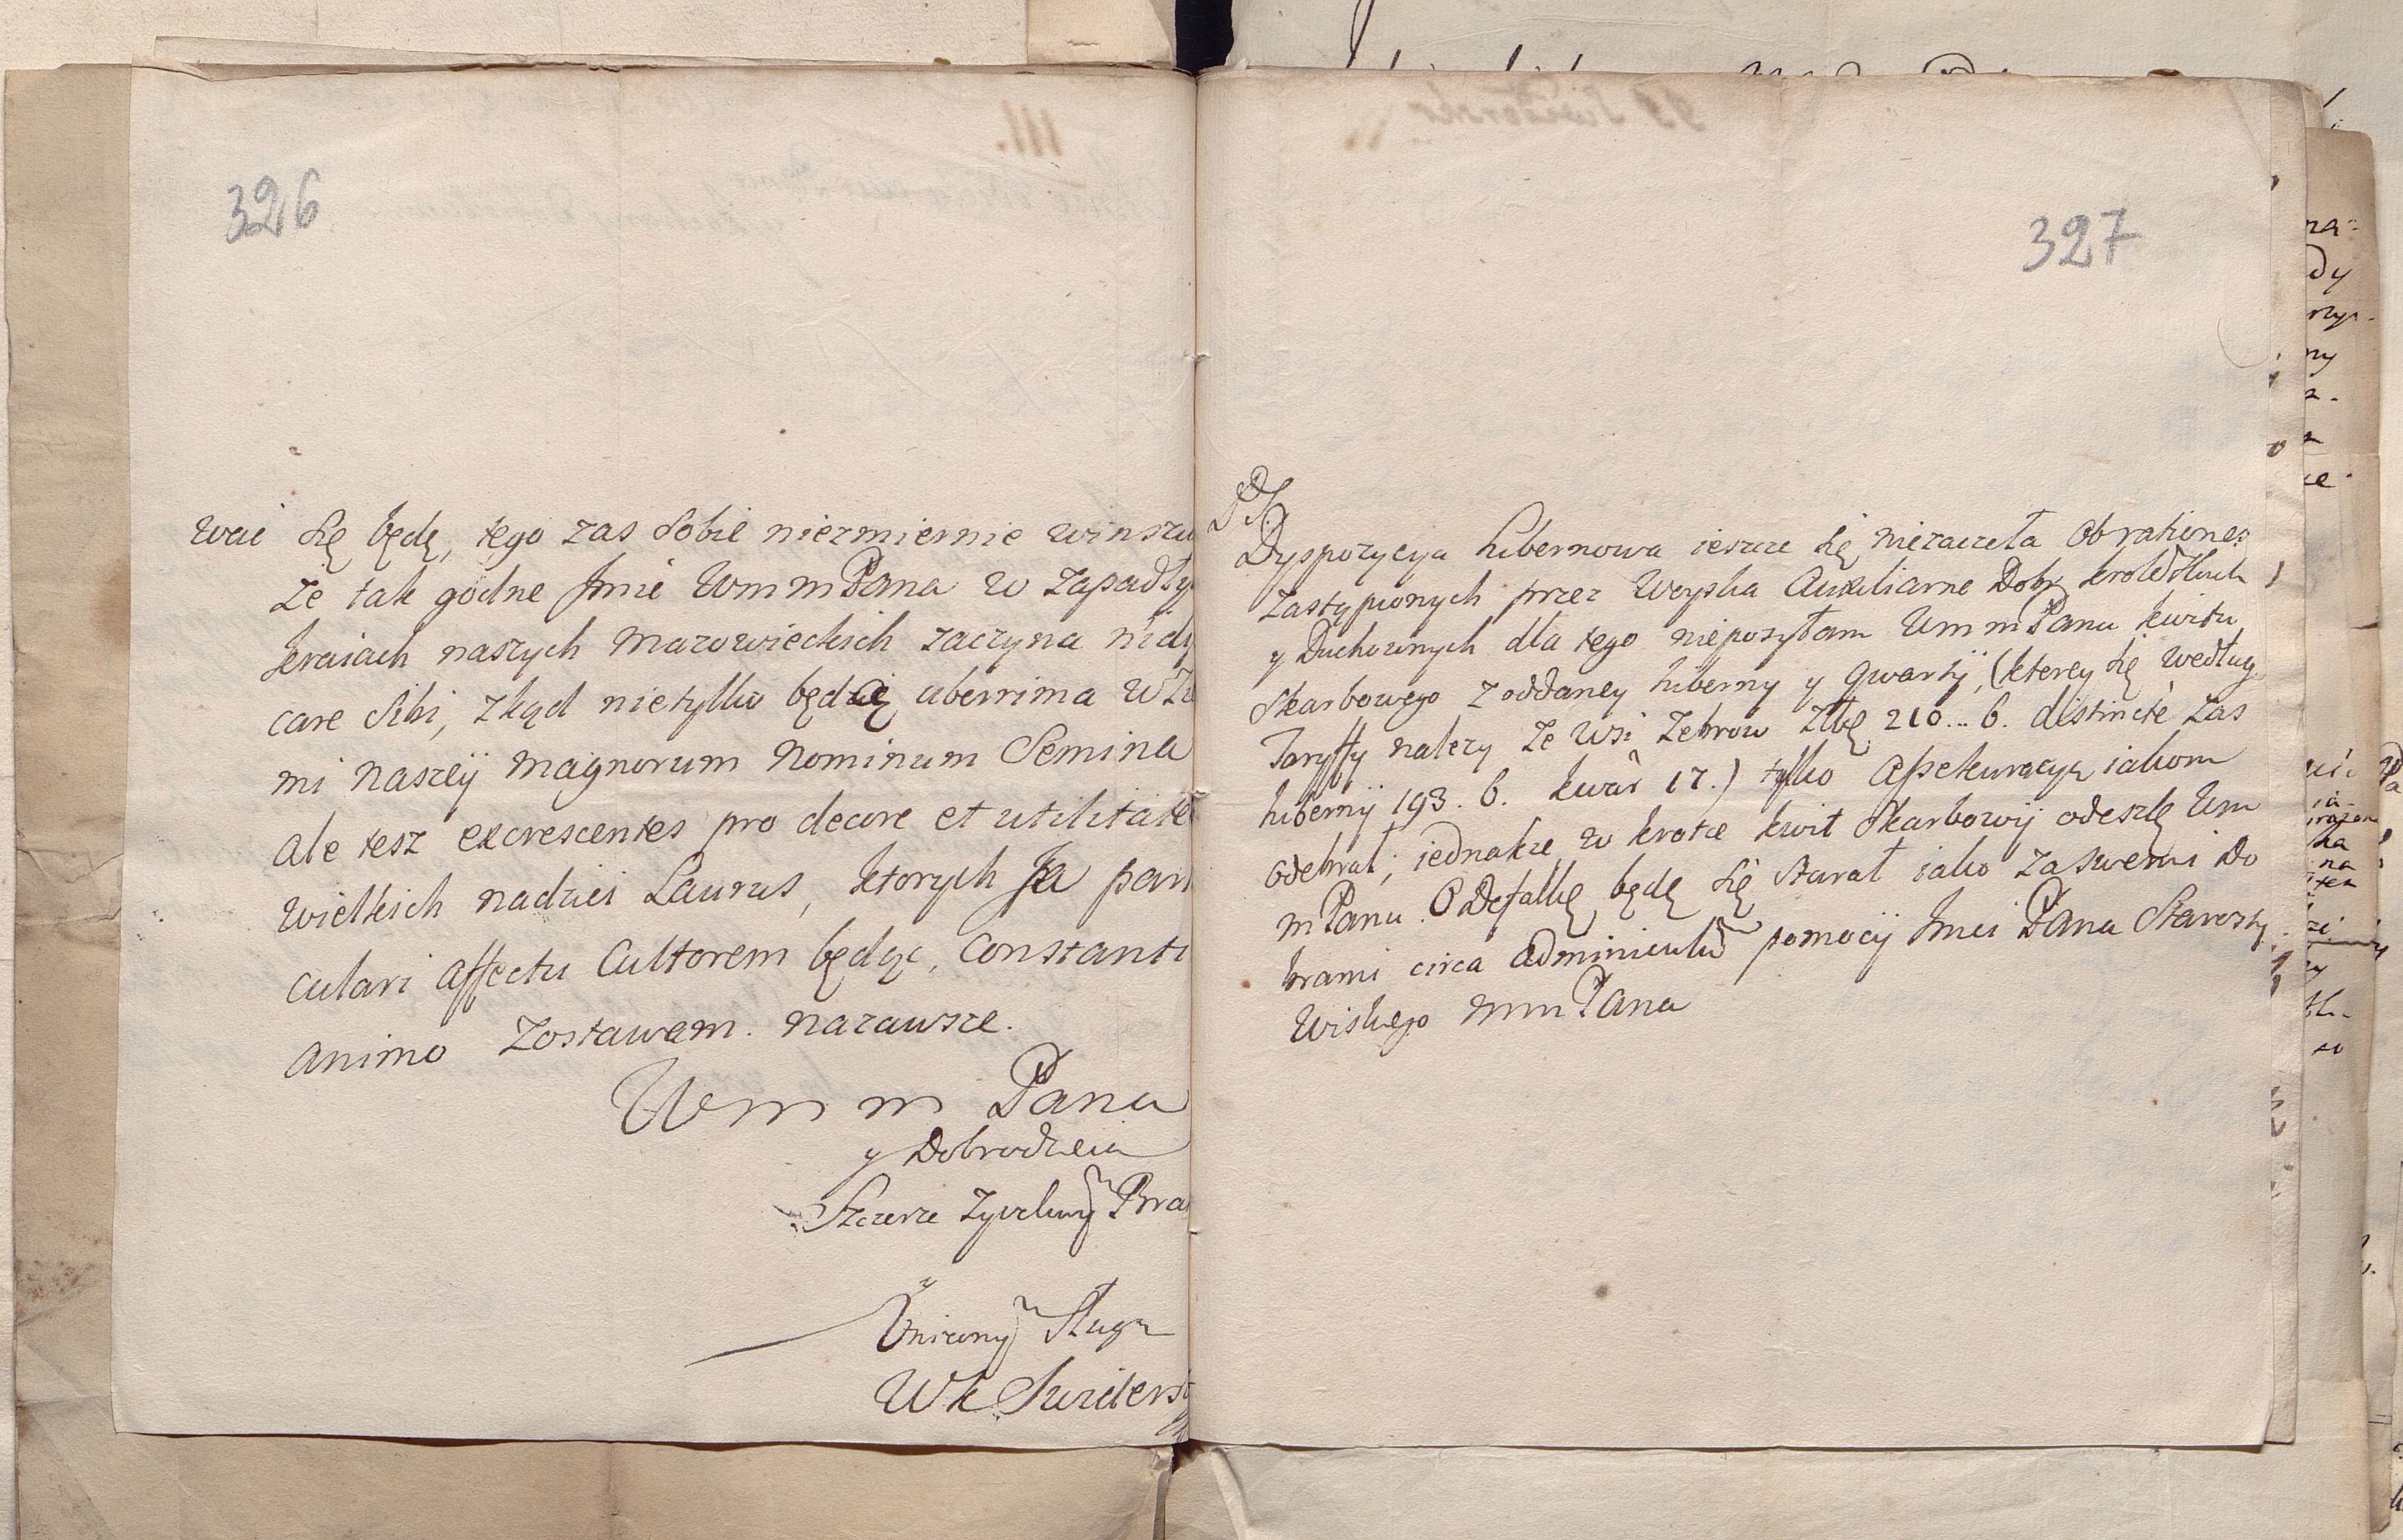 326
wać się będę, tego zas sobie niezmiernie winszu
że tak godne Jmie WmmPana w zapadły
kraiach naszych Mazowieckich zaczyna nidy
care sibi, zkąd nietylko będzie uberrima w
mi naszeÿ magnorum Nominum Semina
ale tesz excrescentes pro decore et utilitate
wielkich nadziei Laurus, ktorych Ja par
culari affectu Cultorem będąc, Constanti
animo zostawam. nazawsze.
Wm m Pana
y Dobrodzieia
Szczerze zyczliwy Bra
y
Unizony Sługa
WK Swiders
327
PS.
Dyspozycya hibernowa ieszcze się niezaczeła ob rationes
zastąpionych przez Woyska Auxiliarne Dobr krolewskich
y Duchownych dla tego nieposyłam WmmPanu kwitu
Skarbowego z oddaney hiberny y qwarty, (ktorey się według
Taryffy nalezy ze wsi Zebrow Złłę 210.. 6. distincte zas
hiberny 193. 6. kwar 17.) tylko assekuracyą iakom
odebrał; iednakze w krotce kwit Skarbowÿ odeszlę Wm
mPanu. O Defalkę będę się starał iako za swemi do
brami circa adminiculũ pomocÿ Jmci Pana Starosty
Wiskego mmPana